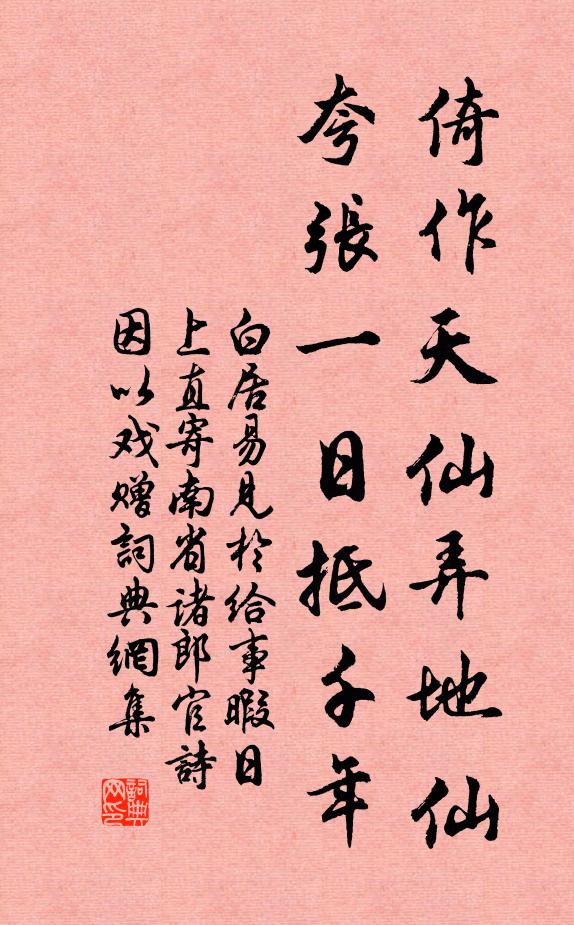 倚作天仙弄地仙
夸張一日抵千年
白居易見於給事暇日
上直寄南省諸郎官詩
因以戏赠詞典網集
詞典
网印